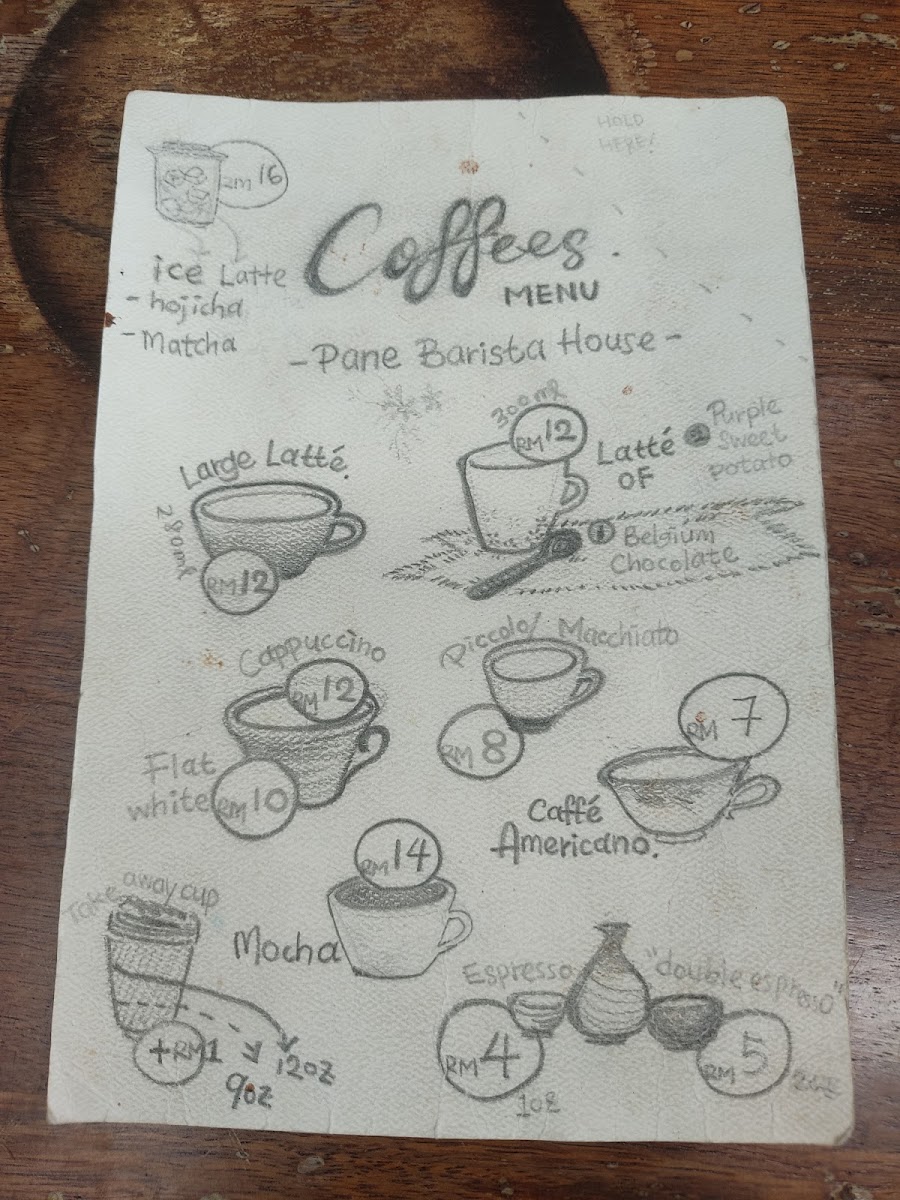 HOLD
HERE!
RM 16
ice Latte
- hojicha
- Matcha
Coffees.
MENU
- Pane Barista House -
Large Latté
280ml
RM 12
300ml
RM 12
Latté
OF
② Purple
Sweet
potato
① Belgium
Chocolate
Cappuccino
RM 12
Flat
white
RM 10
Piccolo/ Macchiato
RM 8
RM 7
Caffé
Americano.
RM 14
Mocha
Take away cup
+RM1
12oz
9oz
Espresso
RM 4
1oz
"double espresso"
RM 5